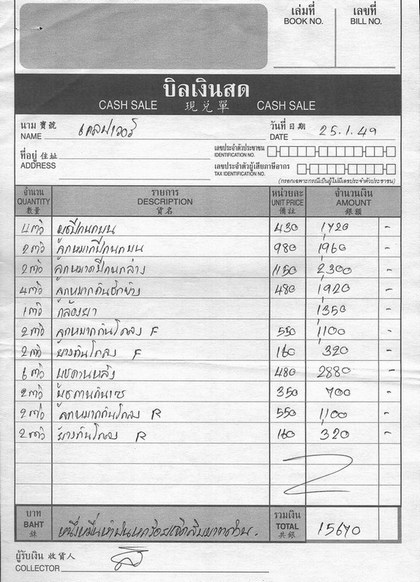 เล่มที่ BOOK NO. เลขที่ BILL NO.
บิลเงินสด
CASH SALE 現兑單 CASH SALE
นาม 寶號 NAME
วันที่ 日期 DATE 25.1.49
ที่อยู่ 住址 ADDRESS
เลขประจำตัวประชาชน IDENTIFICATION NO.
เลขประจำตัวผู้เสียภาษีอากร TAX IDENTIFICATION NO.
(กรอกเฉพาะกรณีเป็นผู้ไม่มีเลขประจำตัวประชาชน)
จำนวน QUANTITY 數量 รายการ DESCRIPTION 貨名 หน่วยละ UNIT PRICE 備註 จำนวนเงิน AMOUNT 銀額
4 ตัว 430 1720 -
2 ตัว ลูกหมากปีกนกบน 980 1960 -
2 ตัว ลูกหมากปีกนกล่าง 1150 2300 -
4 ตัว 480 1920 -
1 ตัว กล้องยา 1350 -
2 ตัว ลูกหมากกันโคลง F 550 1100 -
2 ตัว ยางกันโคลง F 160 320 -
6 ตัว 480 2880 -
2 ตัว 350 700 -
2 ตัว ลูกหมากกันโคลง R 550 1100 -
2 ตัว ยางกันโคลง R 160 320 -
บาท BAHT 銖 หนึ่งหมื่นห้าพันหกร้อยเจ็ดสิบบาทถ้วน. รวมเงิน TOTAL 共銀 15670
ผู้รับเงิน 收貨人 COLLECTOR